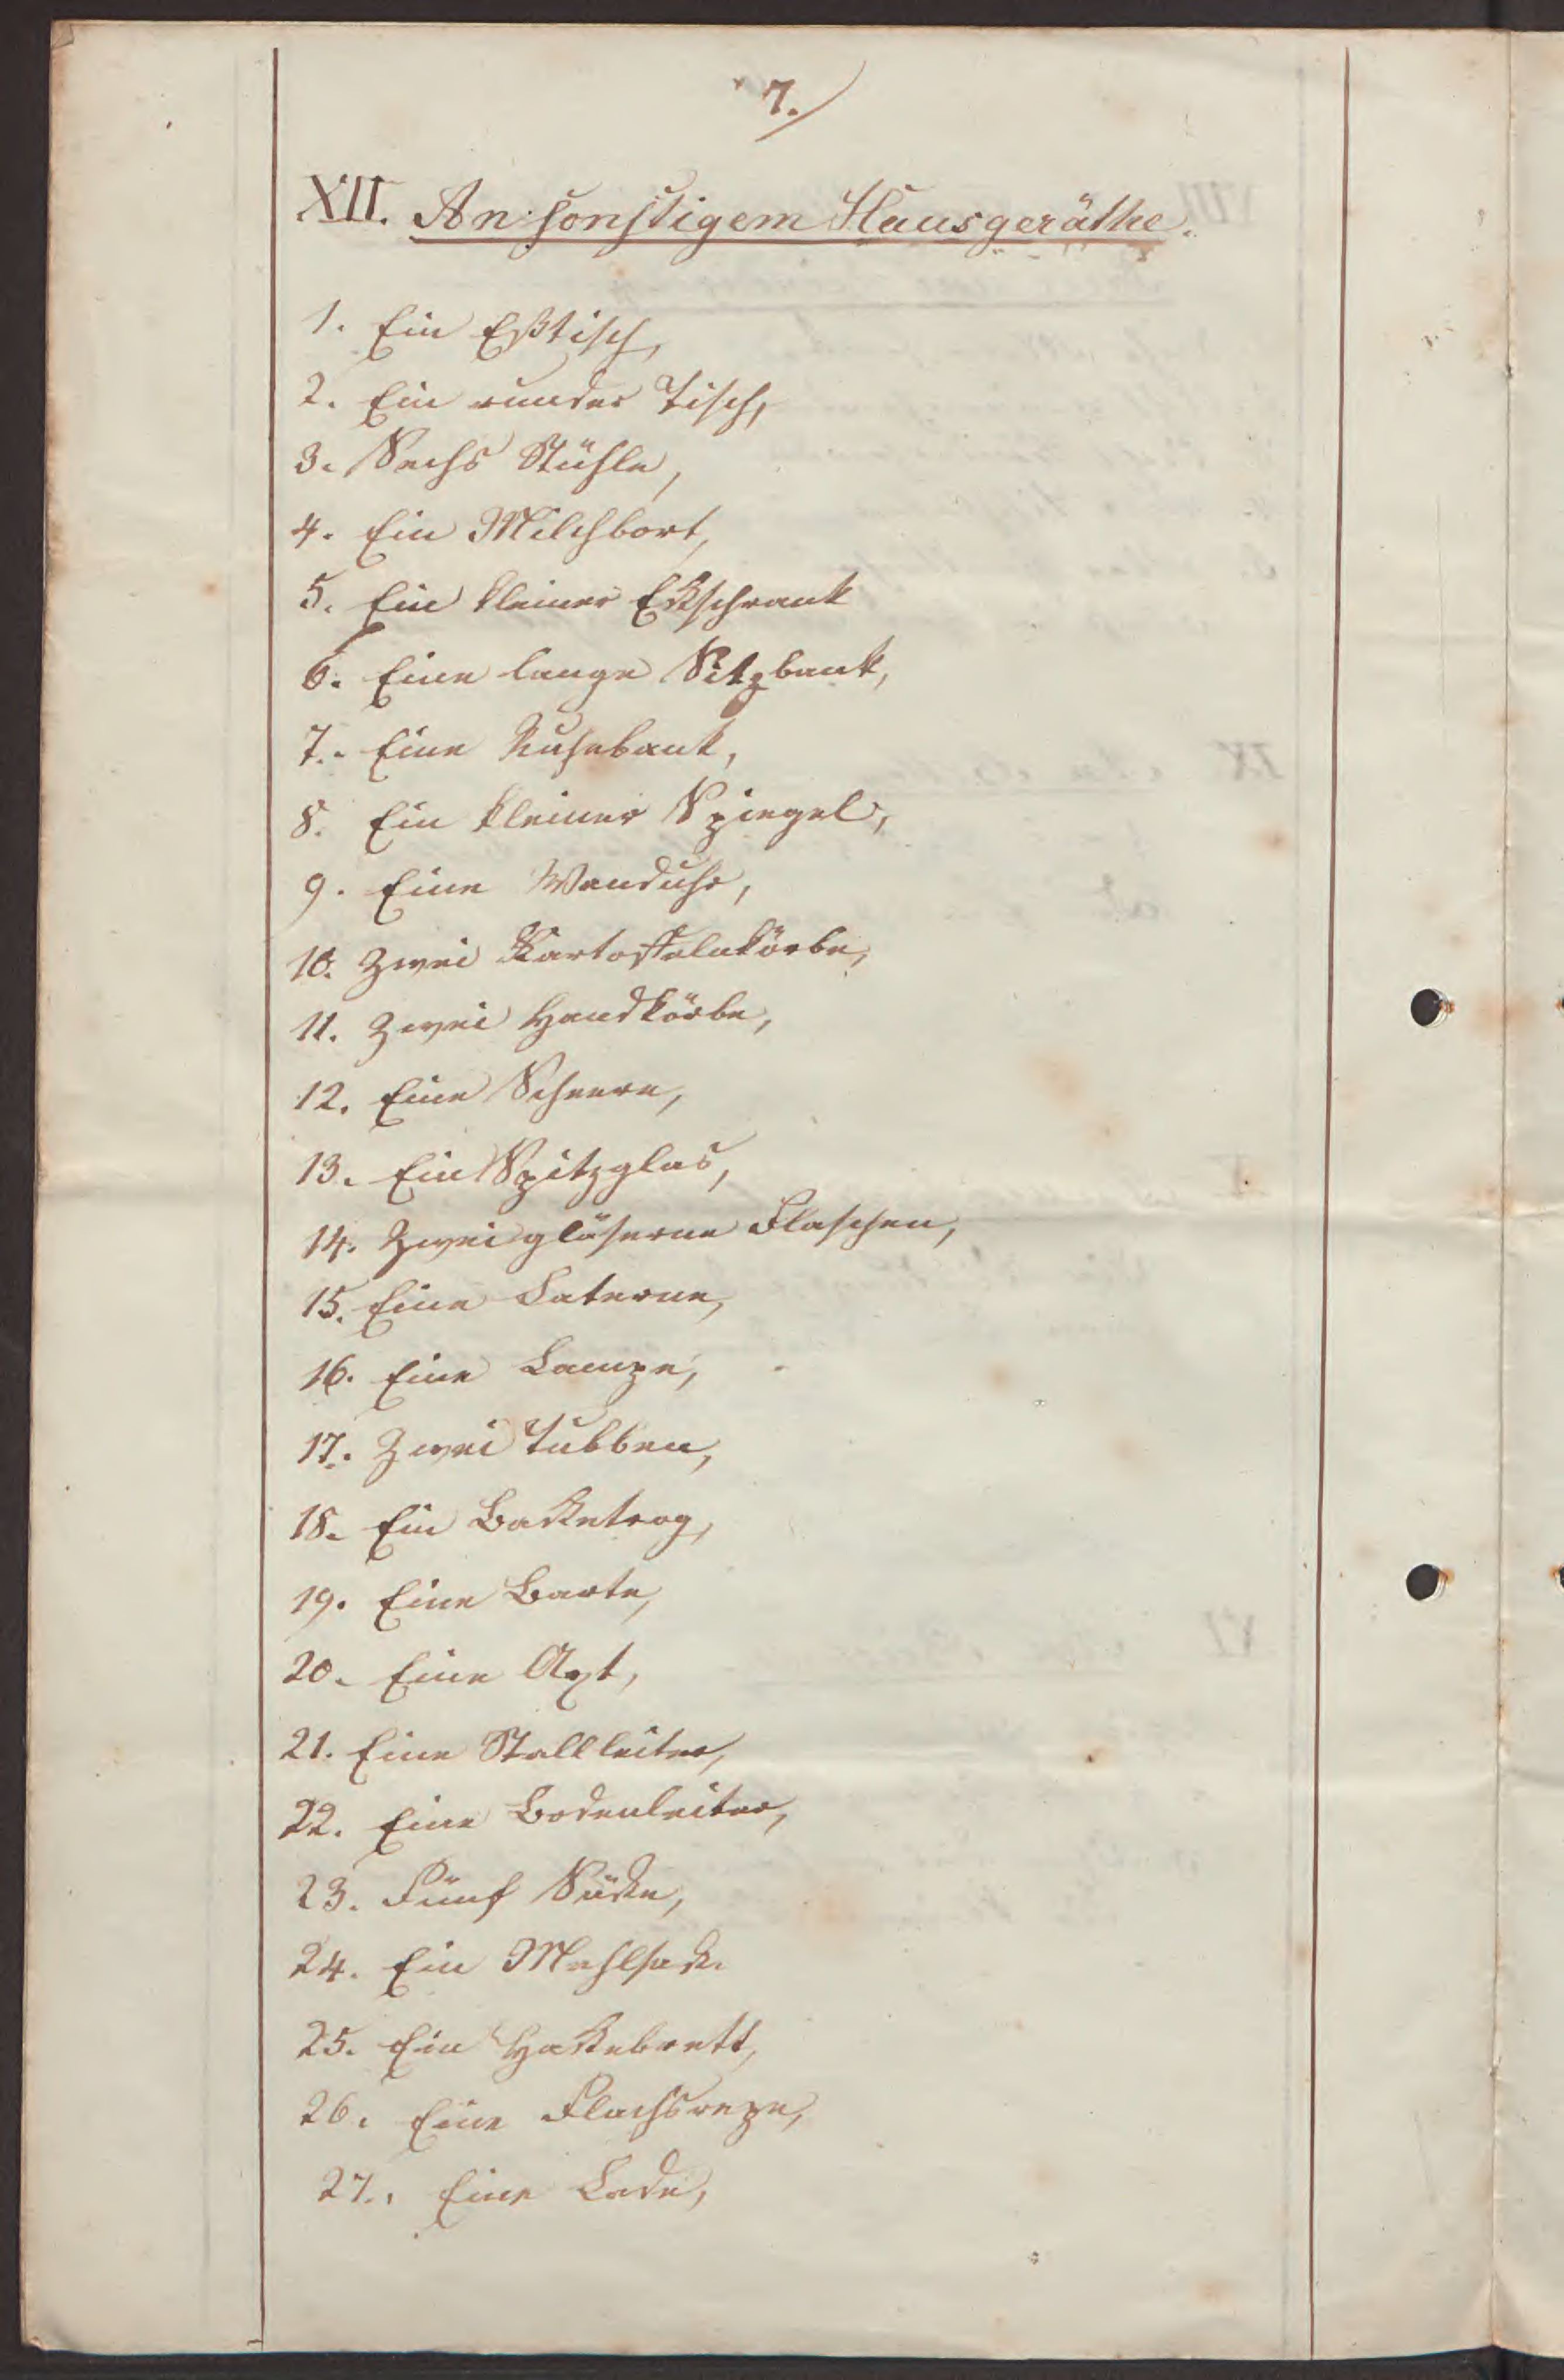 7.
XII. An sonstigem Hausgeräthe.
1. Ein Eßtisch,
2. Ein runder Tisch,
3. Sechs Stühle,
4. Ein Milchbort,
5. Ein kleiner Eckschrank
6. Eine lange Sitzbank,
7. Eine Ruhebank,
8. Ein kleiner Spiegel,
9. Eine Wanduhr,
10. Zwei Kartoffelnkörbe,
11. Zwei Handkörbe,
12. Eine Scheere,
13. Ein Spitzglas,
14. Zwei gläserne Flaschen,
15. Eine Laterne,
16. Eine Lampe,
17. Zwei Tubben,
18. Ein Backetrog,
19. Eine Barte,
20. Eine Axt,
21. Eine Stallleiter,
22. Eine Bodenleiter,
23. Fünf Säcke,
24. Ein Mehlsack.
25. Ein Hackebrett,
26. Eine Flachsrepe,
27. Eine Lade,